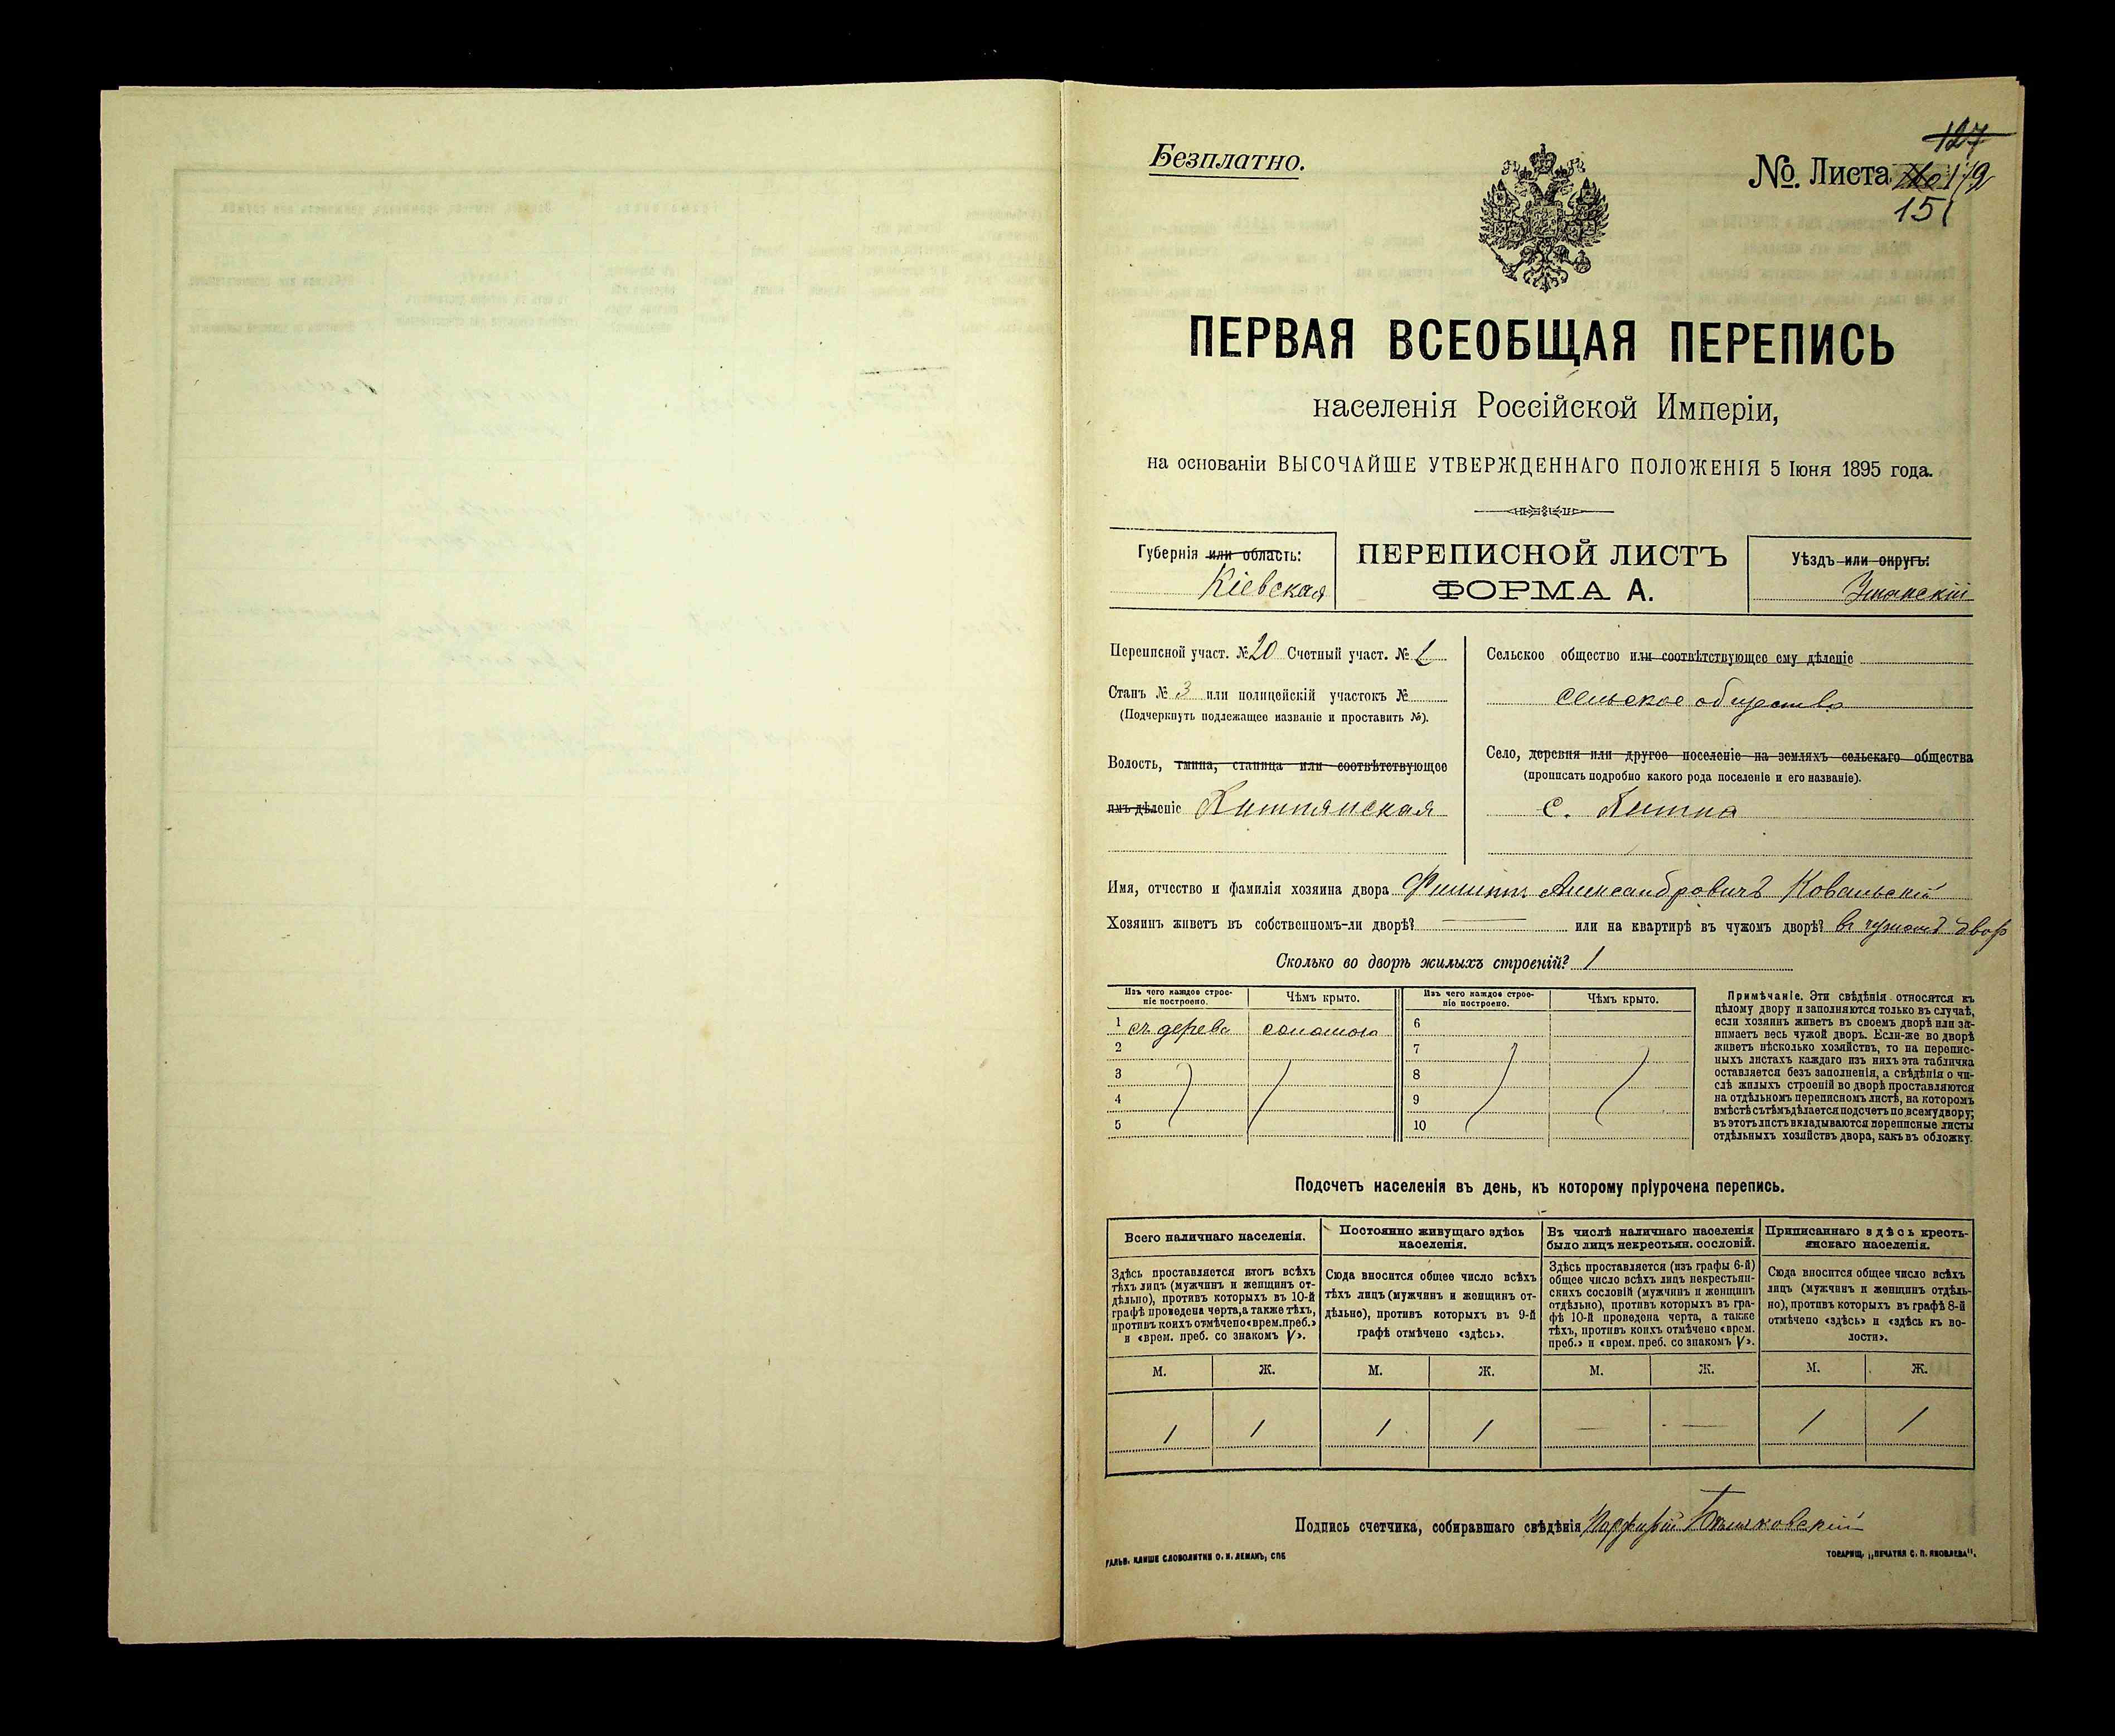 Безплатно.
127
№ Листа 1/2
151
ПЕРВАЯ ВСЕОБЩАЯ ПЕРЕПИСЬ
населенія Россійской Имперіи,
на основаніи ВЫСОЧАЙШЕ УТВЕРЖДЕННАГО ПОЛОЖЕНІЯ 5 Іюня 1895 года.
Губернія или область:
Кіевская
ПЕРЕПИСНОЙ ЛИСТЪ
ФОРМА А.
Уѣздъ или округъ:
Уманскій
Переписной участ. № 20 Счетный участ. №
Станъ № 3 или полицейскій участокъ №
(Подчеркнуть подлежащее названіе и проставить №).
Волость, гмина, станица или соотвѣтствующее
имъ дѣленіе
Сельское общество или соотвѣтствующее ему дѣленіе
сельское общество
Село, деревня или другое поселеніе на земляхъ сельскаго общества
(прописать подробно какого рода поселеніе и его названіе).
с.
Имя, отчество и фамилія хозяина двора Филиппъ Александровичъ Ковальскій
Хозяинъ живетъ въ собственномъ-ли дворѣ? или на квартирѣ въ чужомъ дворѣ? въ чужомъ дворѣ
Сколько во дворѣ жилыхъ строеній? 1
Изъ чего каждое строе-
ніе построено.
Чѣмъ крыто.
1 съ дерева соломою
2
3
4
5
Изъ чего каждое строе-
ніе построено.
Чѣмъ крыто.
6
7
8
9
10
Примѣчаніе. Эти свѣдѣнія относятся къ
цѣлому двору и заполняются только въ случаѣ,
если хозяинъ живетъ въ своемъ дворѣ или за-
нимаетъ весь чужой дворъ. Если-же во дворѣ
живетъ нѣсколько хозяйствъ, то на перепис-
ныхъ листахъ каждаго изъ нихъ эта табличка
оставляется безъ заполненія, а свѣдѣнія о чи-
слѣ жилыхъ строеній во дворѣ проставляются
на отдѣльномъ переписномъ листѣ, на которомъ
вмѣстѣ съ тѣмъ дѣлается подсчетъ по всему двору;
въ этотъ листъ вкладываются переписные листы
отдѣльныхъ хозяйствъ двора, какъ въ обложку.
Подсчетъ населенія въ день, къ которому пріурочена перепись.
Всего наличнаго населенія.
Здѣсь проставляется итогъ всѣхъ
тѣхъ лицъ (мужчинъ и женщинъ от-
дѣльно), противъ которыхъ въ 10-й
графѣ проведена черта, а также тѣхъ,
противъ коихъ отмѣчено «врем. преб.»
и «врем. преб. со знакомъ V».
Постоянно живущаго здѣсь
населенія.
Сюда вносится общее число всѣхъ
тѣхъ лицъ (мужчинъ и женщинъ от-
дѣльно), противъ которыхъ въ 9-й
графѣ отмѣчено «здѣсь».
Въ числѣ наличнаго населенія
было лицъ некрестьян. сословій.
Здѣсь проставляется (изъ графы 6-й)
общее число всѣхъ лицъ некрестьян-
скихъ сословій (мужчинъ и женщинъ
отдѣльно), противъ которыхъ въ гра-
фѣ 10-й проведена черта, а также
тѣхъ, противъ коихъ отмѣчено «врем.
преб.» и «врем. преб. со знакомъ V».
Приписаннаго здѣсь кресть-
янскаго населенія.
Сюда вносится общее число всѣхъ
лицъ (мужчинъ и женщинъ отдѣль-
но), противъ которыхъ въ графѣ 8-й
отмѣчено «здѣсь» и «здѣсь къ во-
лости».
М. Ж. М. Ж. М. Ж. М. Ж.
1 1 1 1 — — 1 1
Подпись счетчика, собиравшаго свѣдѣнія Порфирій
ГАЛЬВ. КЛИШЕ СЛОВОЛИТНИ О. И. ЛЕМАНЪ, СПБ
ТОВАРИЩ. „ПЕЧАТНЯ С. П. ЯКОВЛЕВА".